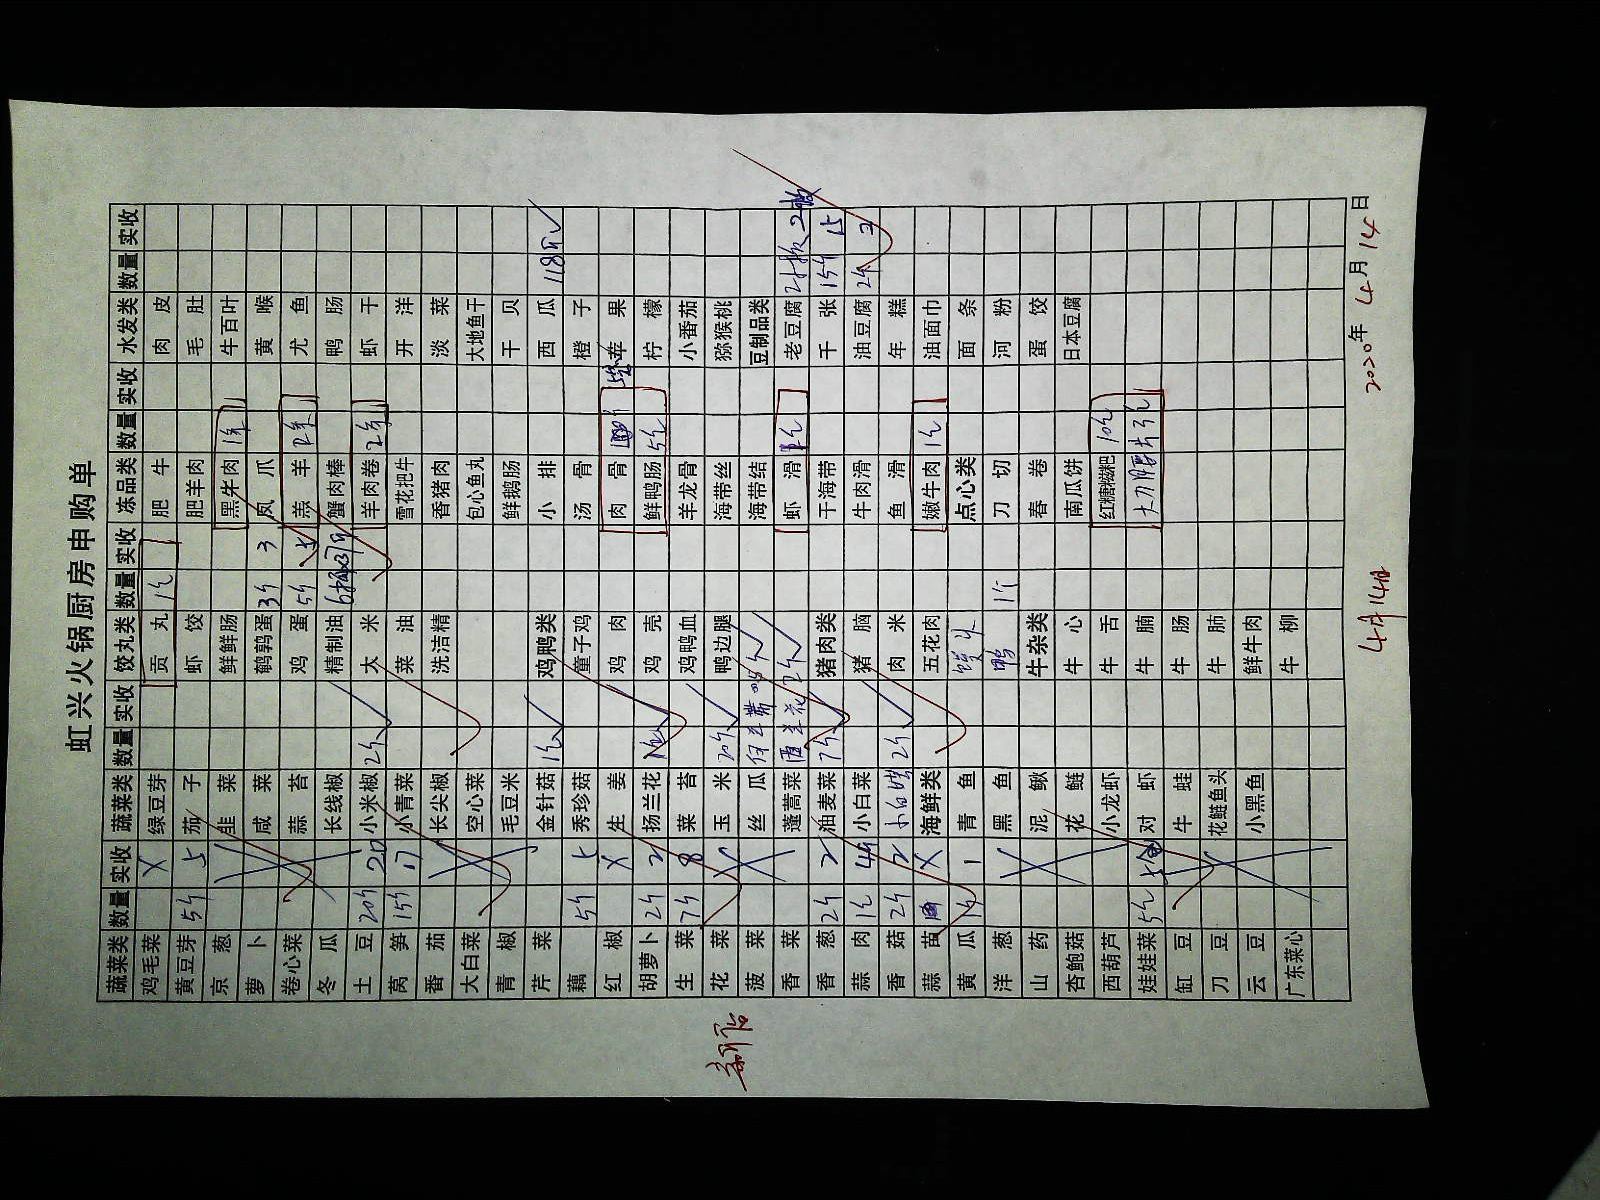 虹兴火锅厨房申购单
蔬菜类 数量 实收 蔬菜类 数量 实收 饺丸类 数量 实收 冻品类 数量 实收 水发类 数量 实收
鸡毛菜 绿豆芽 贡丸 1包 肥牛 肉皮
黄豆芽 5斤 5 茄子 虾饺 肥羊肉 毛肚
京葱 韭菜 鲜鲜肠 黑牛肉 1条 牛百叶
萝卜 咸菜 鹌鹑蛋 3斤 3 凤爪 黄喉
卷心菜 蒜苔 鸡蛋 5斤 5 羔羊 2条 尤鱼
冬瓜 长线椒 精制油 蟹肉棒 鸭肠
土豆 20斤 20 小米椒 2斤 大米 羊肉卷 2条 虾干
莴笋 15斤 小青菜 菜油 雪花把牛 开洋
番茄 长尖椒 洗洁精 香猪肉 淡菜
大白菜 空心菜 包心鱼丸 大地鱼干
青椒 毛豆米 鲜鹅肠 干贝
芹菜 金针菇 1包 鸡鸭类 小排 西瓜 118元
藕 5斤 5 秀珍菇 童子鸡 汤骨 橙子
红椒 生姜 鸡肉 肉骨 苹果
胡萝卜 2斤 2 扬兰花 鸡壳 鲜鸭肠 5包 柠檬
生菜 7斤 8 菜苔 鸡鸭血 羊龙骨 小番茄
花菜 玉米 20斤 鸭边腿 海带丝 猕猴桃
菠菜 丝瓜 海带结 豆制品类
香菜 蓬蒿菜 虾滑 老豆腐 2板 2板
香葱 2斤 2 油麦菜 7斤 猪肉类 干海带 千张 15斤 15
蒜肉 1包 小白菜 猪脑 牛肉滑 油豆腐 2斤 2
香菇 2斤 2 2斤 肉米 鱼滑 年糕
蒜苗 海鲜类 五花肉 嫩牛肉 1包 油面巾
黄瓜 1 青鱼 点心类 面条
洋葱 黑鱼 鸭 1个 刀切 河粉
山药 泥鳅 牛杂类 春卷 蛋饺
杏鲍菇 花鲢 牛心 南瓜饼 日本豆腐
西葫芦 小龙虾 牛舌 红糖糍粑 10包
娃娃菜 5包 对虾 牛腩
缸豆 牛蛙 牛肠
刀豆 花鲢鱼头 牛肺
云豆 小黑鱼 鲜牛肉
广东菜心 牛柳
4月14日
2020年4月14日